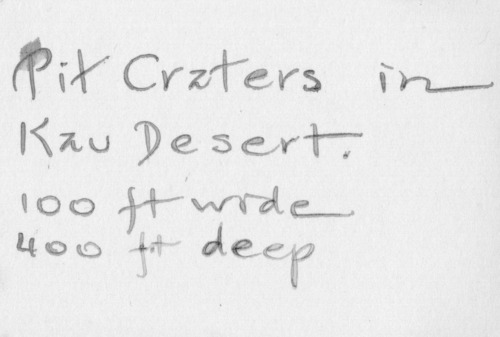 Pit Craters in
Kau Desert.
100 ft wide
400 ft deep